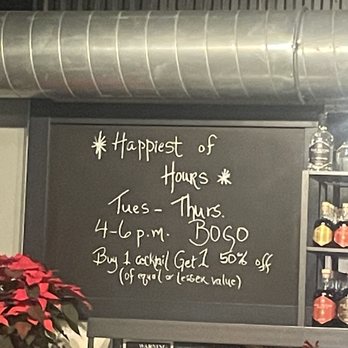 * Happiest of
Hours *
Tues - Thurs.
4-6 p.m. BOGO
Buy 1 cocktail Get 1 50% off
(of equal or lesser value)
WARNING